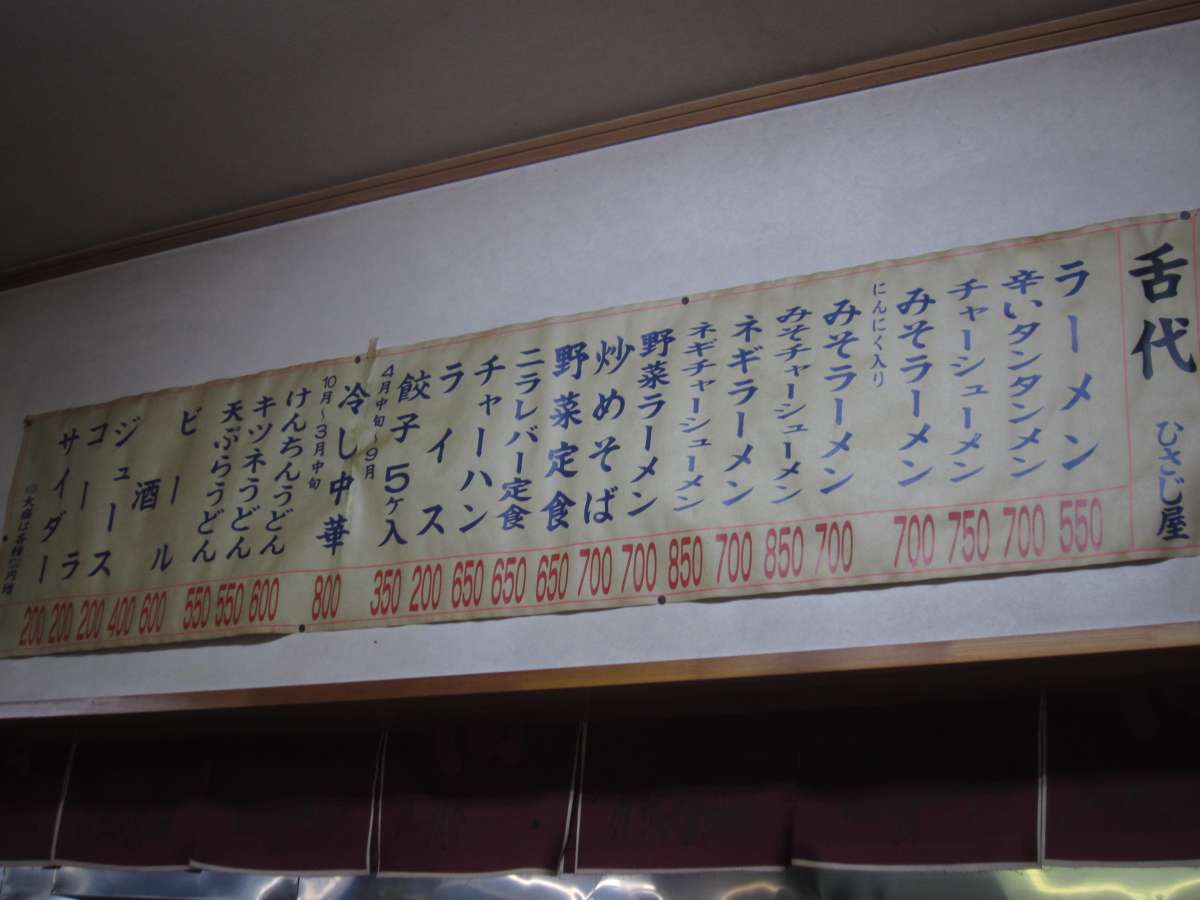 舌代 ひさじ屋
ラーメン 550
辛いタンタンメン 700
チャーシューメン 750
みそラーメン 700
にんにく入り
みそラーメン 700
みそチャーシューメン 850
ネギラーメン 700
ネギチャーシューメン 850
野菜ラーメン 700
炒めそば 700
野菜定食 650
ニラレバー定食 650
チャーハン 650
ライス 200
餃子5ケ入 350
4月中旬〜9月
冷し中華 800
10月〜3月中旬
けんちんうどん 600
キツネうどん 550
天ぷらうどん 550
ビール 600
酒 400
ジュース 200
コーラ 200
サイダー 200
大盛は各種